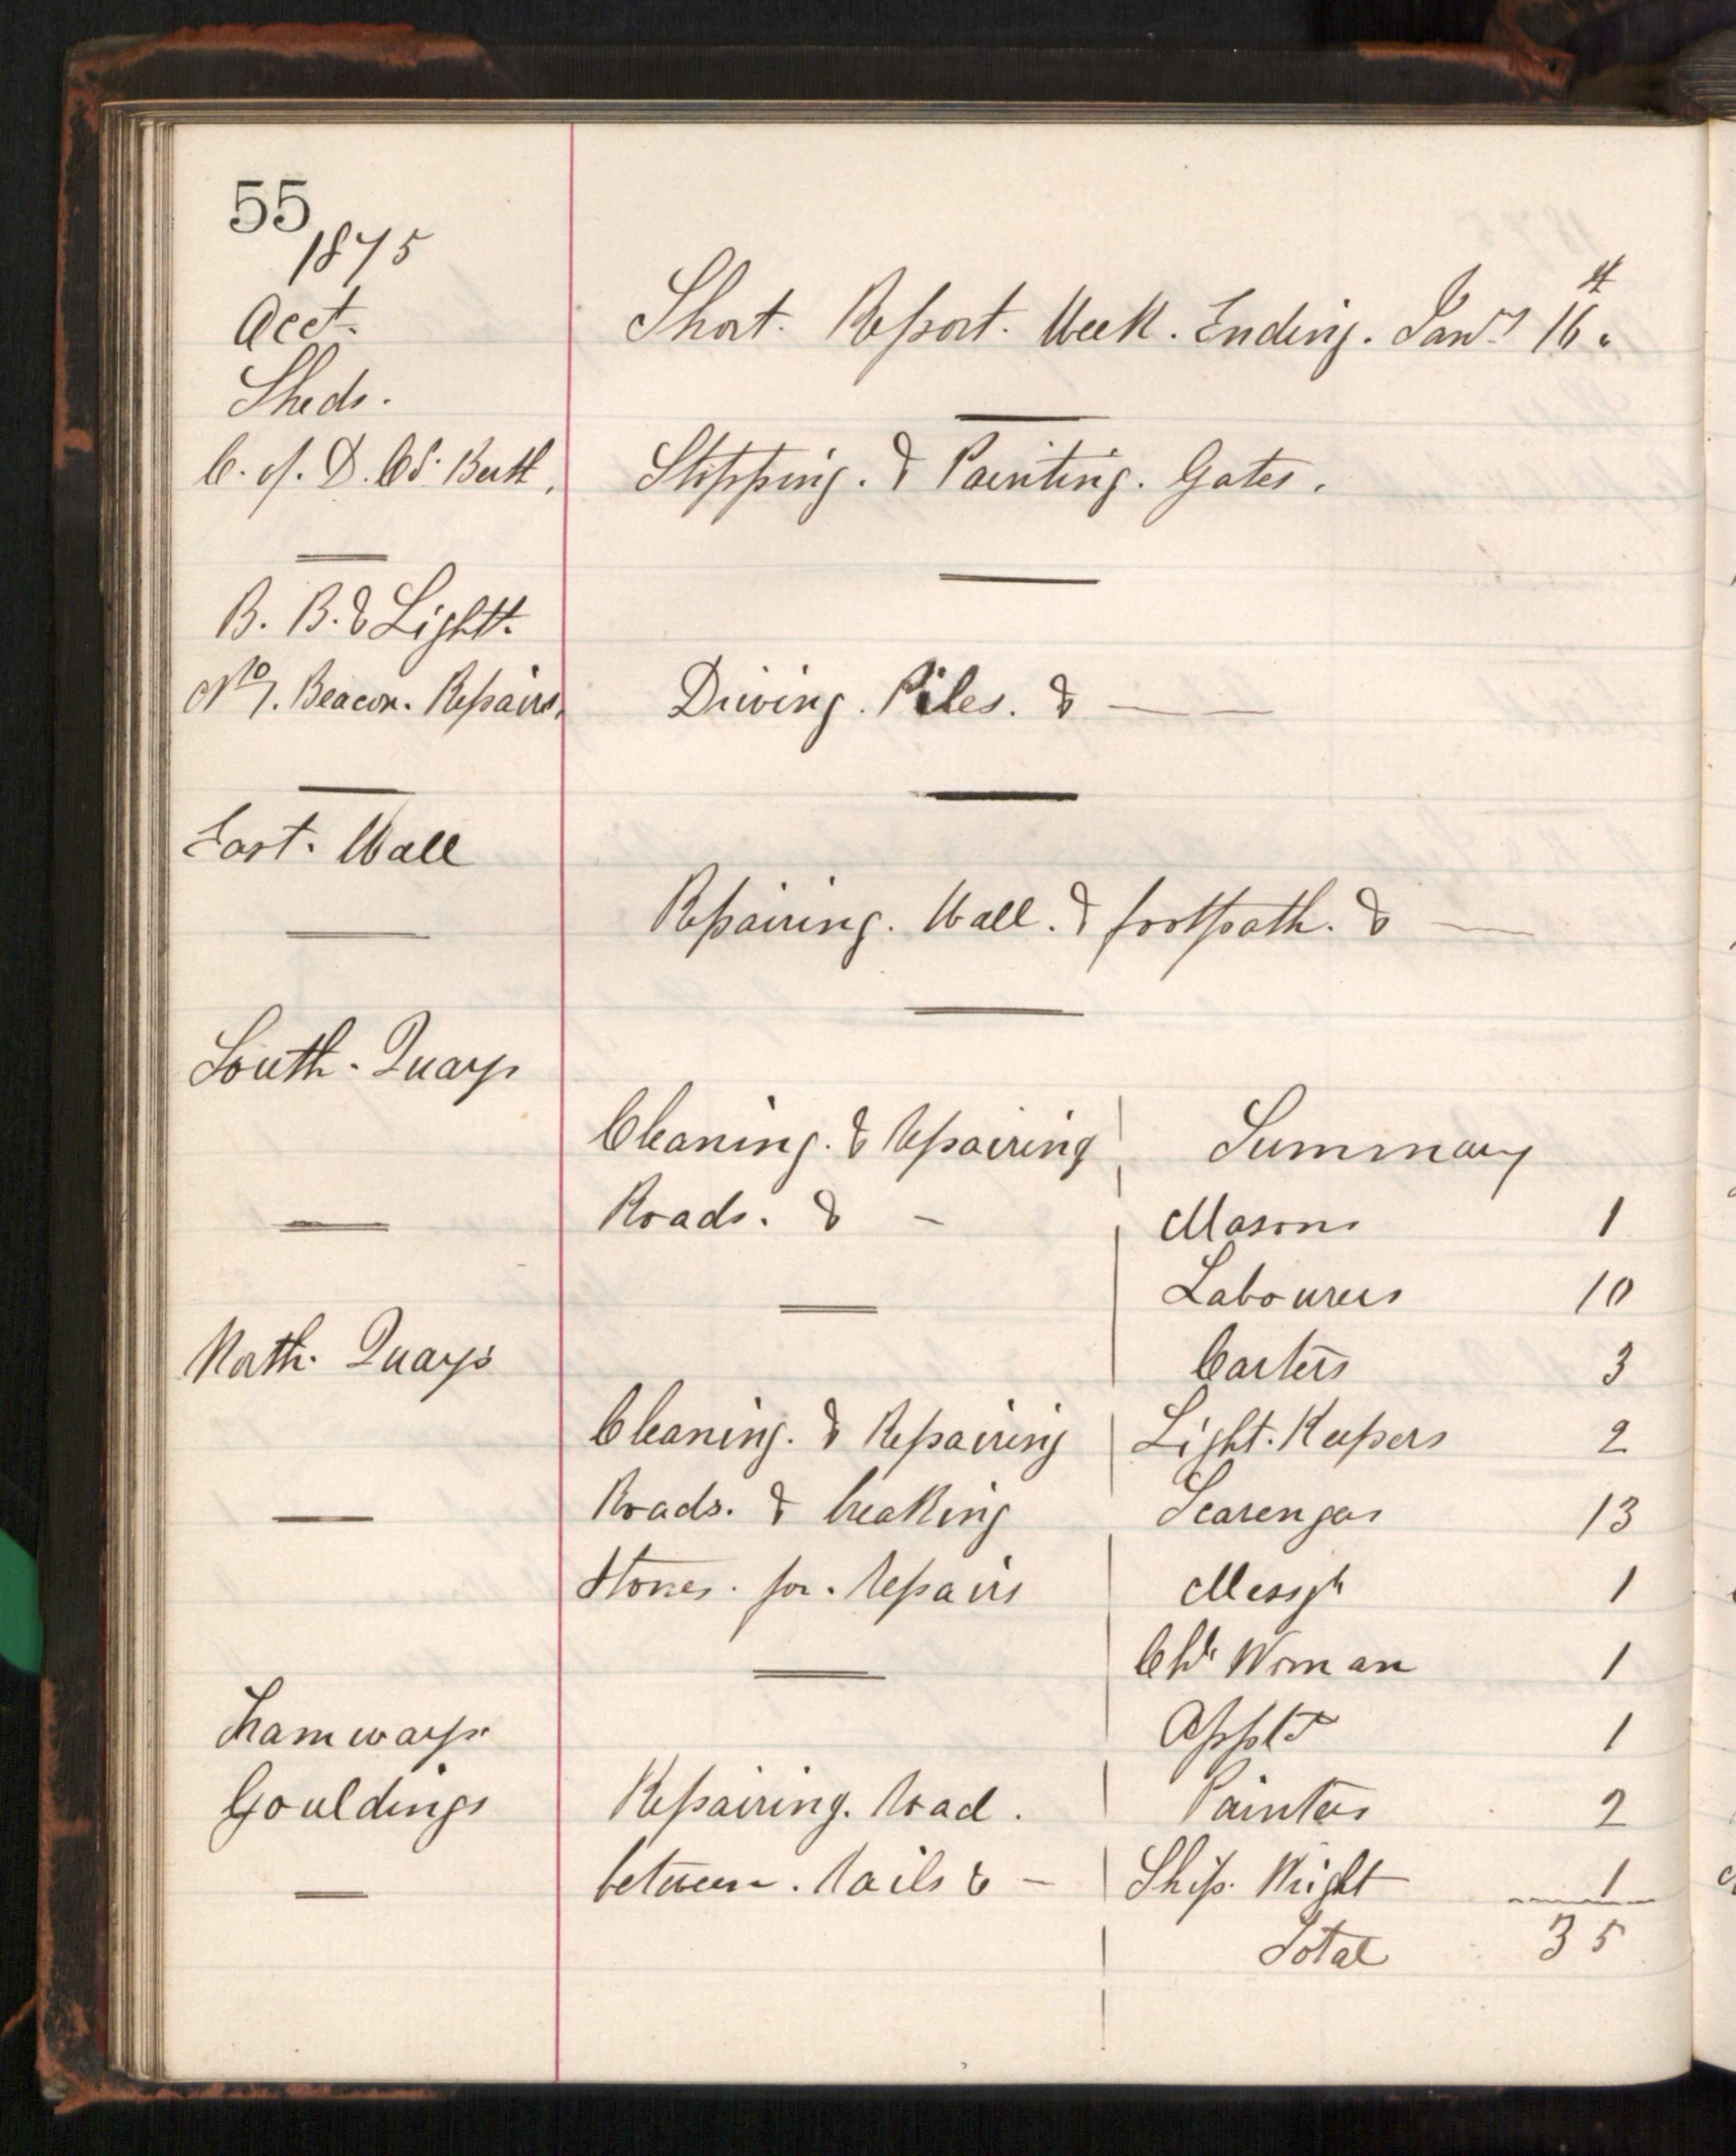 55
1875
Acct.
Short. Report. Week. Ending. Jany 16th.
Sheds.
C. of. D. Co. Berth.
Stopping. & Painting. Gates.
B. B. & Light.
No 7. Beacon. Repairs.
Driving. Piles. & — —
East. Wall
Repairing. Wall. & footpath. & —
South. Quays
Cleaning. & Repairing
Roads. & —
North. Quays
Cleaning. & Repairing
Roads. & breaking
Stones. for. Repairs
Tramways.
Gouldings
Repairing. Road.
between. Rails & —
Summary
Masons 1
Labourers 10
Carters 3
Light. Keepers 2
Scavengers 13
Messgr 1
Woman 1
1
Painters 2
Ship. Wright 1
Total 35